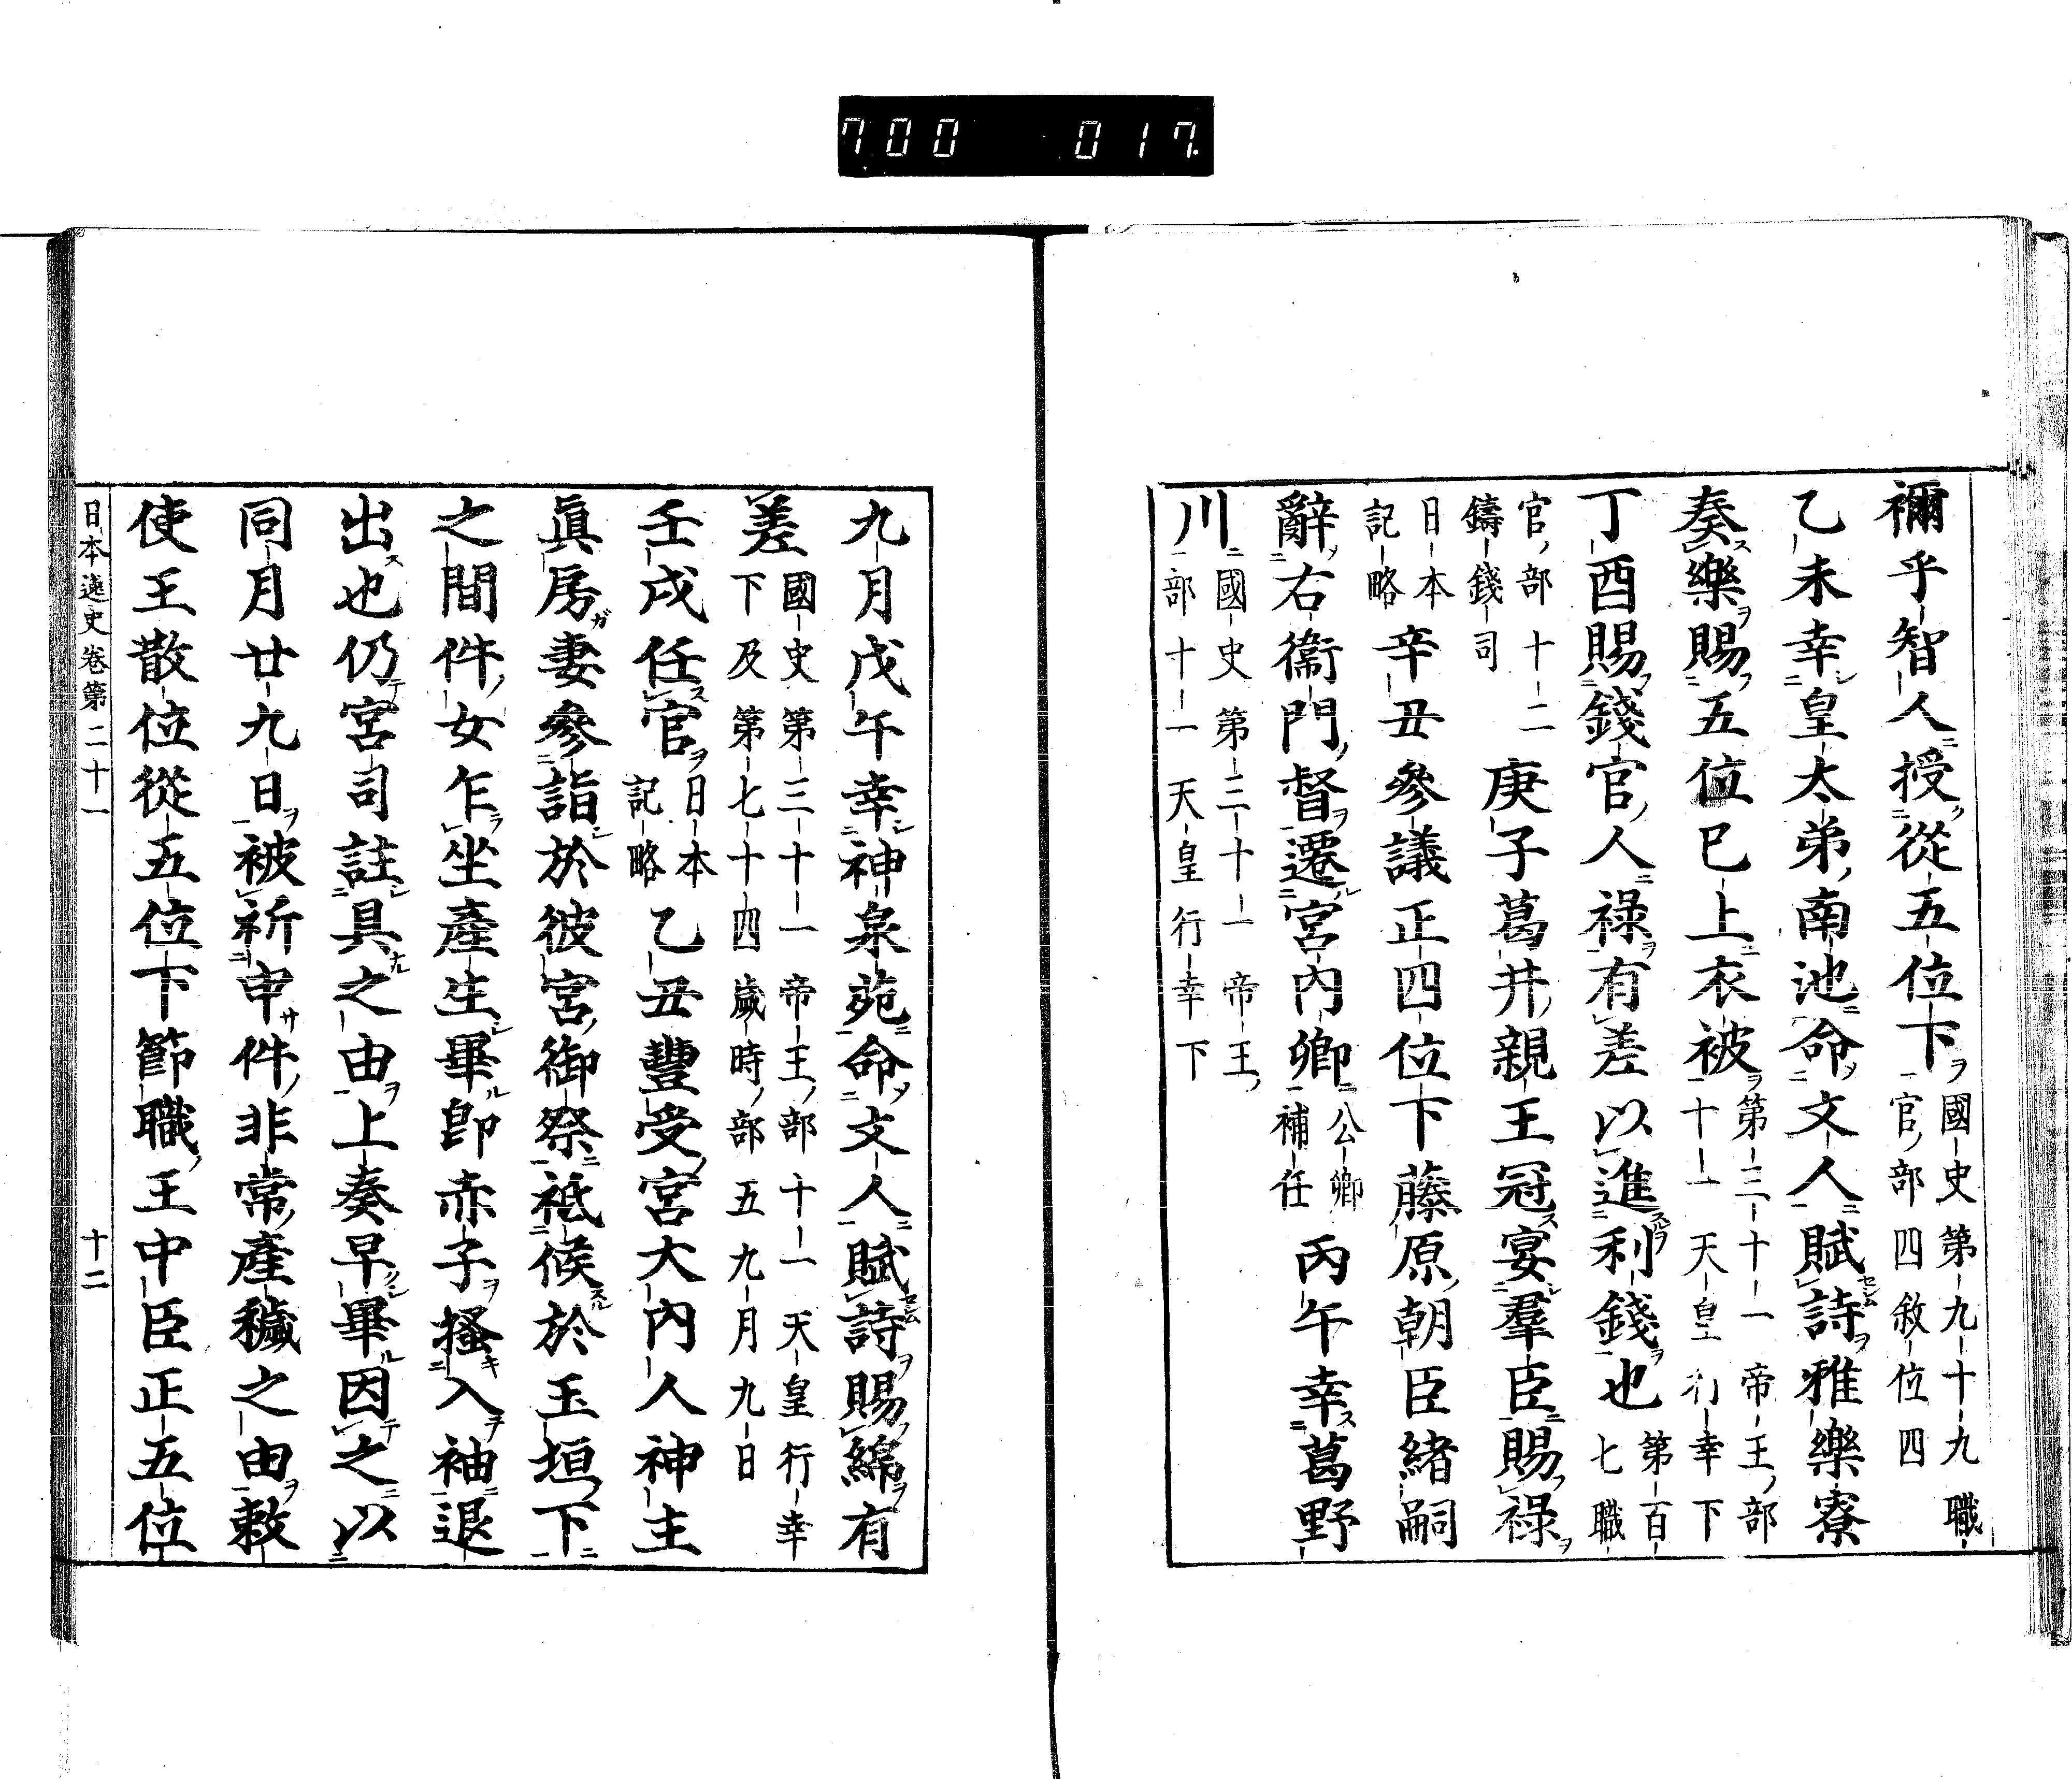 700 017
禰乎智人授從五位下國史第九十九職
官部四敘位四
乙未幸皇太弟南池命文人賦詩雅樂寮
奏樂賜五位已上衣被第三十一帝王部
十一天皇行幸下
丁酉賜錢官人祿有差以進利錢也第百
七職
官部十二
鑄錢司
庚子葛井親王冠宴羣臣賜祿
日本
記略
辛丑參議正四位下藤原朝臣緒嗣
辭右衞門督遷宮內卿公卿
補任
丙午幸葛野
川國史第三十一帝王
部十一天皇行幸下
九月戊午幸神泉苑命文人賦詩賜綿有
差國史第三十一帝王部十一天皇行幸
下及第七十四歲時部五九月九日
壬戌任官日本
記略
乙丑豐受宮大內人神主
眞房妻參詣於彼宮御祭祗候於玉垣下
之間件女乍坐產生畢卽赤子搔入袖退
出也仍宮司註具之由上奏早畢因之以
同月廿九日被祈申件非常產穢之由敕
使王散位從五位下節職王中臣正五位
日本逸史卷第二十一 十二